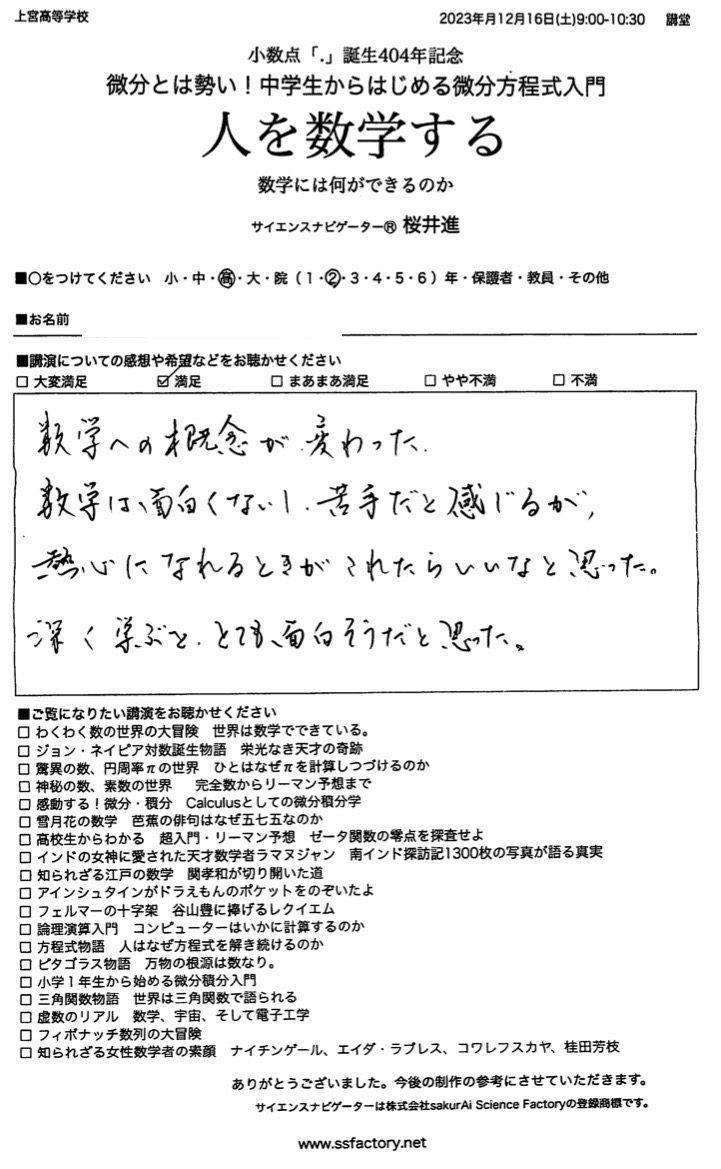 上宮高等学校 2023年月12月16日(土)9:00-10:30 講堂
小数点「.」誕生404年記念
微分とは勢い！中学生からはじめる微分方程式入門
人を数学する
数学には何ができるのか
サイエンスナビゲーター® 桜井進
■〇をつけてください 小・中・高・大・院（1・2・3・4・5・6）年・保護者・教員・その他
■お名前
■講演についての感想や希望などをお聴かせください
□ 大変満足 ☑ 満足 □ まあまあ満足 □ やや不満 □ 不満
数学への概念が、変わった。
数学は、面白くないし、苦手だと感じるが、
熱心になれるときがこれたらいいなと思った。
深く学ぶと、とても、面白そうだと思った。
■ご覧になりたい講演をお聴かせください
□ わくわく数の世界の大冒険 世界は数学でできている。
□ ジョン・ネイピア対数誕生物語 栄光なき天才の奇跡
□ 驚異の数、円周率πの世界 ひとはなぜπを計算しつづけるのか
□ 神秘の数、素数の世界 完全数からリーマン予想まで
□ 感動する！微分・積分 Calculusとしての微分積分学
□ 雪月花の数学 芭蕉の俳句はなぜ五七五なのか
□ 高校生からわかる 超入門・リーマン予想 ゼータ関数の零点を探査せよ
□ インドの女神に愛された天才数学者ラマヌジャン 南インド探訪記1300枚の写真が語る真実
□ 知られざる江戸の数学 関孝和が切り開いた道
□ アインシュタインがドラえもんのポケットをのぞいたよ
□ フェルマーの十字架 谷山豊に捧げるレクイエム
□ 論理演算入門 コンピューターはいかに計算するのか
□ 方程式物語 人はなぜ方程式を解き続けるのか
□ ピタゴラス物語 万物の根源は数なり。
□ 小学１年生から始める微分積分入門
□ 三角関数物語 世界は三角関数で語られる
□ 虚数のリアル 数学、宇宙、そして電子工学
□ フィボナッチ数列の大冒険
□ 知られざる女性数学者の素顔 ナイチンゲール、エイダ・ラブレス、コワレフスカヤ、桂田芳枝
ありがとうございました。今後の制作の参考にさせていただきます。
サイエンスナビゲーターは株式会社sakurAi Science Factoryの登録商標です。
www.ssfactory.net